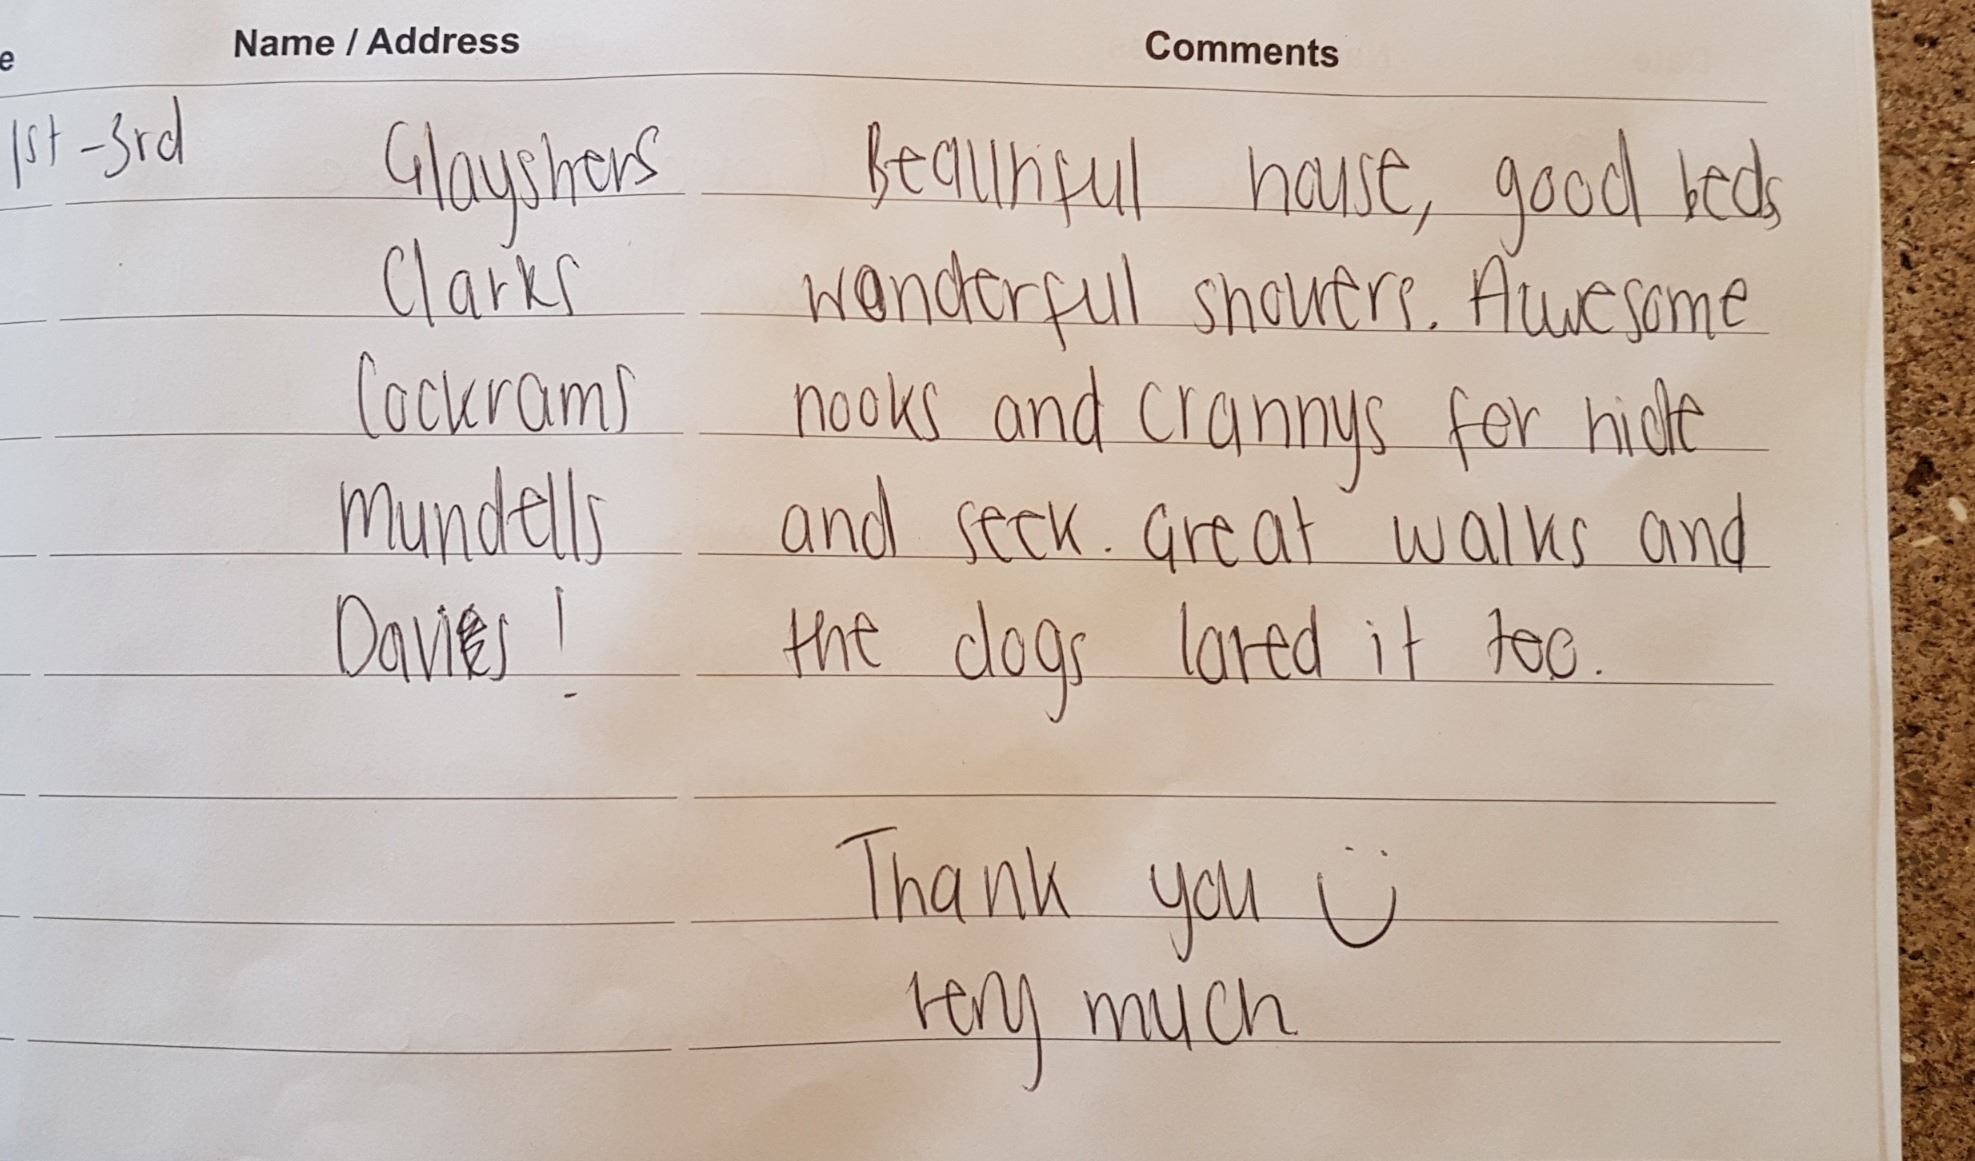 e Name / Address Comments
1st - 3rd Glayshers Beautiful house, good beds
Clarks wonderful showers. Awesome
Cockrams nooks and crannys for hide
Mundells and seek. Great walks and
Davies! the dogs loved it too.
Thank you
very much